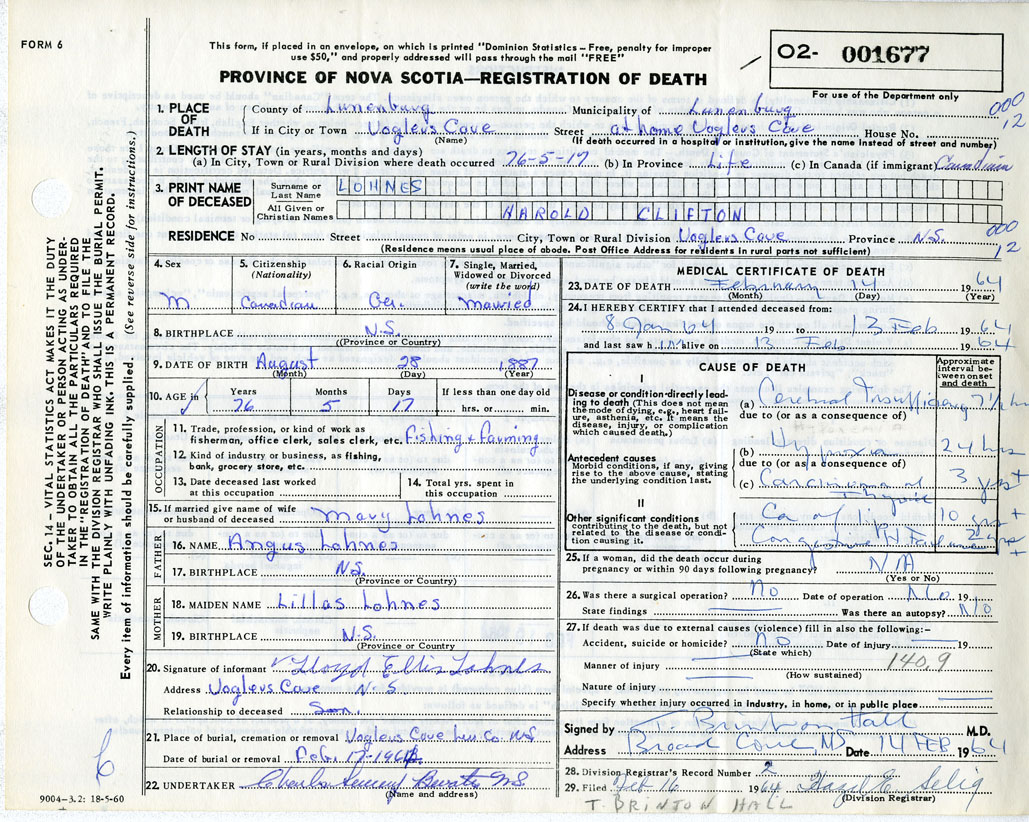 FORM 6
This form, if placed in an envelope, on which is printed "Dominion Statistics – Free, penalty for improper
use $50," and properly addressed will pass through the mail "FREE"
PROVINCE OF NOVA SCOTIA—REGISTRATION OF DEATH
O2- 001677
For use of the Department only
SEC. 14 – VITAL STATISTICS ACT MAKES IT THE DUTY
OF THE UNDERTAKER OR PERSON ACTING AS UNDER-
TAKER TO OBTAIN ALL THE PARTICULARS REQUIRED
IN THE "REGISTRATION OF DEATH" AND TO FILE THE
SAME WITH THE DIVISION REGISTRAR WHO SHALL ISSUE THE BURIAL PERMIT.
WRITE PLAINLY WITH UNFADING INK. THIS IS A PERMANENT RECORD.
Every item of information should be carefully supplied. (See reverse side for instructions.)
1. PLACE OF DEATH County of Lunenburg Municipality of Lunenburg 000
If in City or Town Voglers Cove Street at home Voglers Cove House No. 12
(Name) (If death occurred in a hospital or institution, give the name instead of street and number)
2. LENGTH OF STAY (in years, months and days)
(a) In City, Town or Rural Division where death occurred 76-5-17 (b) In Province Life (c) In Canada (if immigrant) Canadian
3. PRINT NAME OF DECEASED Surname or Last Name LOHNES
All Given or Christian Names HAROLD CLIFTON
RESIDENCE No Street City, Town or Rural Division Voglers Cove Province N.S. 000
(Residence means usual place of abode. Post Office Address for residents in rural parts not sufficient) 12
4. Sex 5. Citizenship (Nationality) 6. Racial Origin 7. Single, Married, Widowed or Divorced (write the word)
M Canadian Ger. Married
8. BIRTHPLACE N.S.
(Province or Country)
9. DATE OF BIRTH August 28 1887
(Month) (Day) (Year)
10. AGE in Years Months Days If less than one day old
76 5 17 hrs. or min.
OCCUPATION
11. Trade, profession, or kind of work as
fisherman, office clerk, sales clerk, etc. Fishing & Farming
12. Kind of industry or business, as fishing,
bank, grocery store, etc.
13. Date deceased last worked at this occupation 14. Total yrs. spent in this occupation
15. If married give name of wife or husband of deceased Mary Lohnes
FATHER
16. NAME Angus Lohnes
17. BIRTHPLACE N.S.
(Province or Country)
MOTHER
18. MAIDEN NAME Lillas Lohnes
19. BIRTHPLACE N.S.
(Province or Country)
20. Signature of informant Lloyd Ellis Lohnes
Address Voglers Cove N-S
Relationship to deceased Son.
21. Place of burial, cremation or removal Voglers Cove Lun Co. NS
Date of burial or removal Feb. 17-1964
22. UNDERTAKER Charles
(Name and address)
9004–3.2: 18-5-60
MEDICAL CERTIFICATE OF DEATH
23. DATE OF DEATH February 14 1964
(Month) (Day) (Year)
24. I HEREBY CERTIFY that I attended deceased from:
8 Jan 64 19 to 13 Feb 1964
and last saw him alive on 13 Feb 1964
CAUSE OF DEATH
Approximate interval between onset and death
I
Disease or condition directly lead-
ing to death (This does not mean
the mode of dying, e.g., heart fail-
ure, asthenia, etc. It means the
disease, injury, or complication
which caused death.)
(a) Cerebral Insufficiency 7½ hr
due to (or as a consequence of)
(b) Hypoxia 24 hrs
due to (or as a consequence of)
Antecedent causes
Morbid conditions, if any, giving
rise to the above cause, stating
the underlying condition last.
(c) Carcinoma of 3 yrs+
II
Other significant conditions
contributing to the death, but not
related to the disease or condi-
tion causing it.
Ca of lip 10 yrs +
Congestive Ht Failure 2 yrs +
25. If a woman, did the death occur during
pregnancy or within 90 days following pregnancy? N/A
(Yes or No)
26. Was there a surgical operation? No Date of operation No.
State findings Was there an autopsy? No
27. If death was due to external causes (violence) fill in also the following:–
Accident, suicide or homicide? no Date of injury 19
(State which)
Manner of injury 140.9
(How sustained)
Nature of injury
Specify whether injury occurred in industry, in home, or in public place
Signed by T. Brinton Hall M.D.
Address Broad Cove NS Date 14 FEB 1964
28. Division Registrar's Record Number 2
29. Filed Feb 16 1964 Hazel E. Selig
T. BRINTON HALL (Division Registrar)